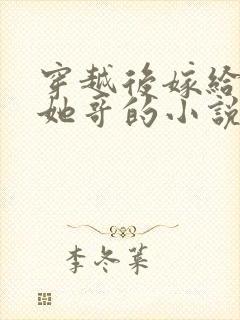 穿越後嫁給
她哥的小說
李冬菓